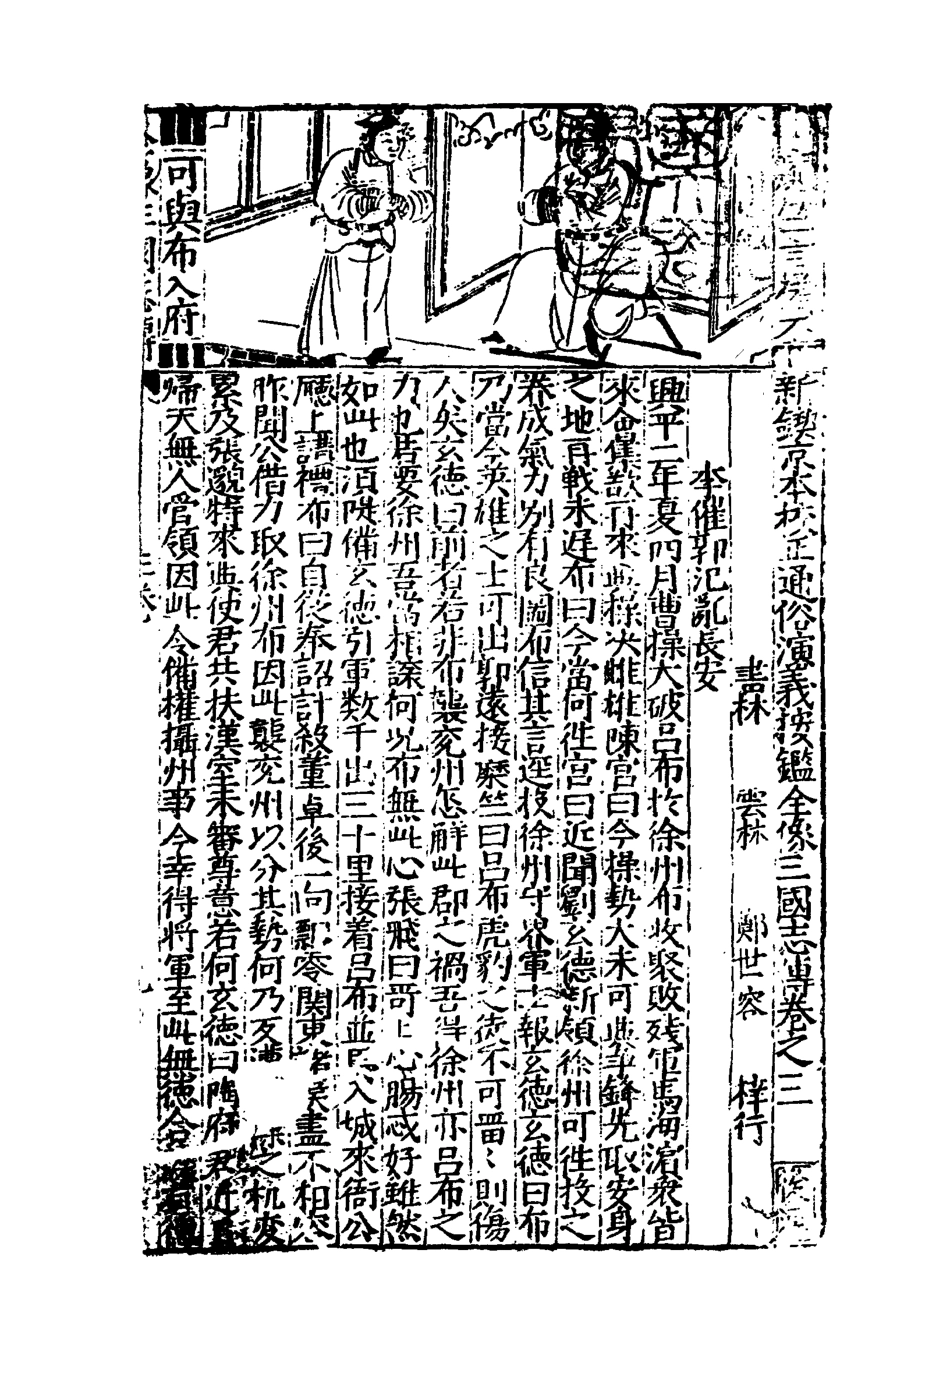 新鍥京本校正通俗演義按鑑全像三國志傳卷之三
書林 雲林 鄭世容 梓行
李傕郭汜亂長安
興平二年夏四月曹操大破呂布於徐州布收聚敗残軍馬海濱衆皆
來會集欲再來與操决雌雄陳宮曰今操勢大未可與爭鋒先取安身
之地再戰未遅布曰今當何徃宮曰近聞劉玄德新領徐州可徃投之
养成氣力别有良圖布信其言逕投徐州守界軍士報玄德玄德曰布
乃當今英雄之士可出郭遠接糜竺曰呂布虎豹之徒不可畱畱則傷
人矣玄德曰前者若非布襲兖州怎解此郡之禍吾得徐州亦呂布之
力也居要徐州吾當相讓何况布無此心張飛曰哥上心腸忒好雖然
如此也須隄備玄德引軍数千出三十里接着呂布並馬入城來衙公
廳上講禮布曰自從奉詔計殺董卓後一向飄零関東諸侯盡不相容
昨聞公借力取徐州布因此襲兖州以分其勢何乃反 之机变
累及張邈特來與使君共扶漢室未審尊意若何玄徳曰陶府君近
歸天無人管領因此令備權攝州事今幸得将軍至此無德合
可與布入府